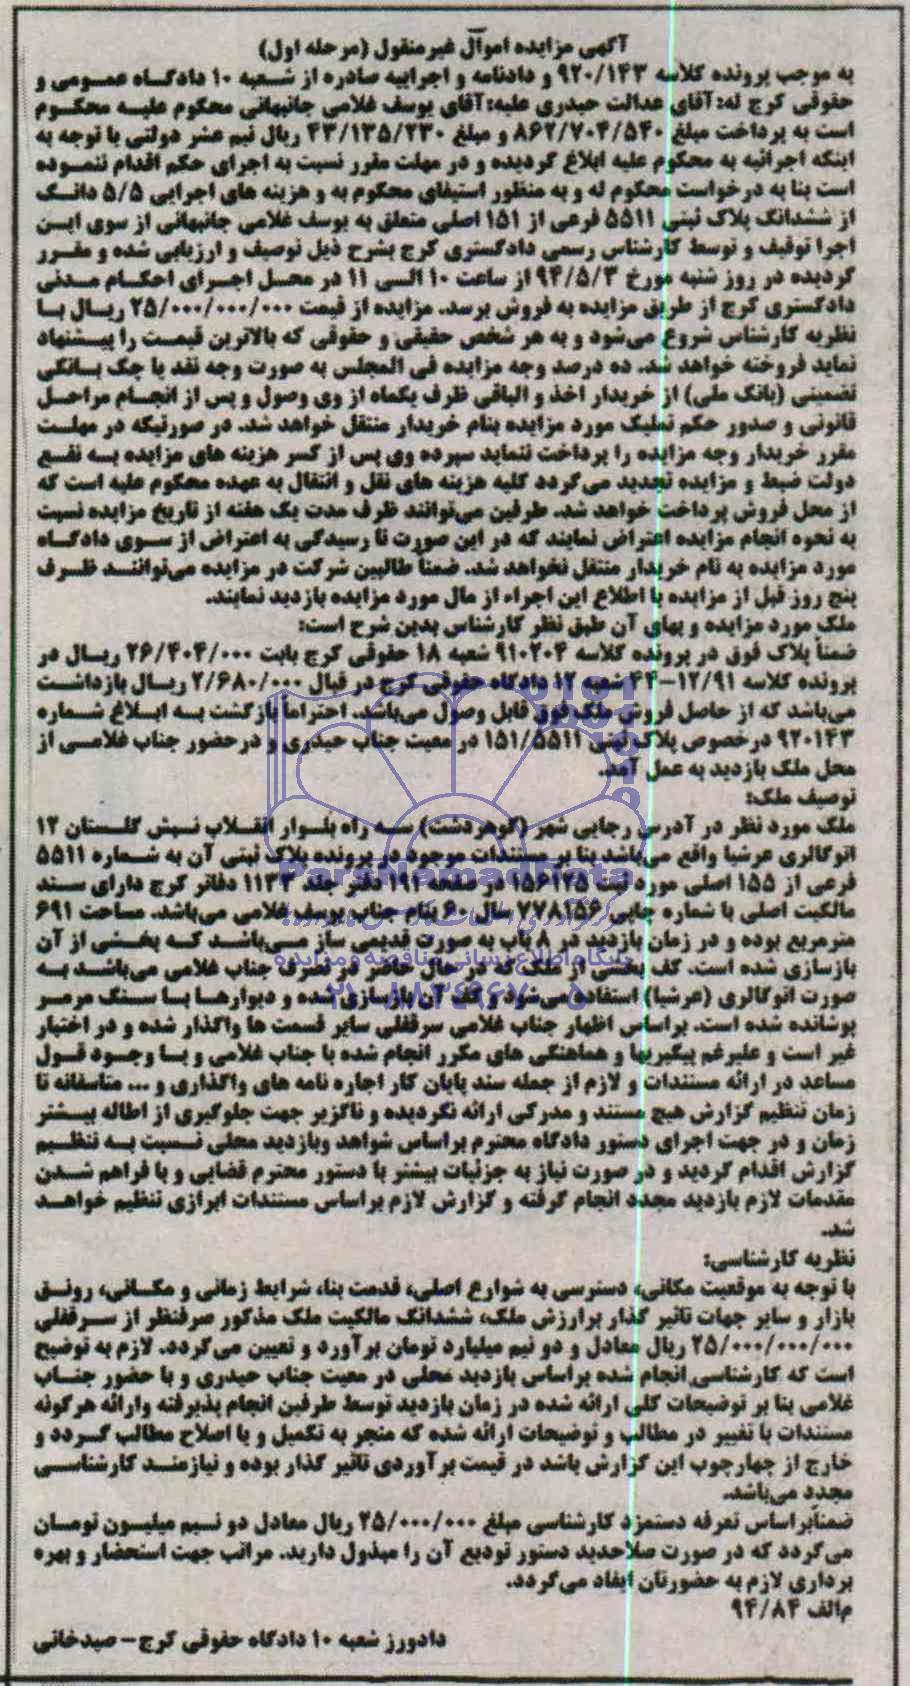 آگهی مزایده اموال غیرمنقول (مرحله اول)
به موجب پرونده کلاسه ۹۲۰/۱۴۳ و دادنامه و اجراییه صادره از شعبه ۱۰ دادگاه عمومی و
حقوقی کرج له: آقای عدالت حیدری علیه: آقای یوسف غلامی جانبهانی محکوم علیه محکوم
است به پرداخت مبلغ ۸۶۲/۷۰۴/۵۴۰ و مبلغ ۴۳/۱۳۵/۲۳۰ ریال نیم عشر دولتی با توجه به
اینکه اجرائیه به محکوم علیه ابلاغ گردیده و در مهلت مقرر نسبت به اجرای حکم اقدام ننموده
است بنا به درخواست محکوم له و به منظور استیفای محکوم به و هزینه های اجرایی ۵/۵ دانگ
از ششدانگ پلاک ثبتی ۵۵۱۱ فرعی از ۱۵۱ اصلی متعلق به یوسف غلامی جانبهانی از سوی این
اجرا توقیف و توسط کارشناس رسمی دادگستری کرج بشرح ذیل توصیف و ارزیابی شده و مقرر
گردیده در روز شنبه مورخ ۹۴/۵/۳ از ساعت ۱۰ الی ۱۱ در محل اجرای احکام مدنی
دادگستری کرج از طریق مزایده به فروش برسد. مزایده از قیمت ۲۵/۰۰۰/۰۰۰/۰۰۰ ریال با
نظریه کارشناس شروع می‌شود و به هر شخص حقیقی و حقوقی که بالاترین قیمت را پیشنهاد
نماید فروخته خواهد شد. ده درصد وجه مزایده فی المجلس به صورت وجه نقد یا چک بانکی
تضمینی (بانک ملی) از خریدار اخذ و الباقی ظرف یکماه از وی وصول و پس از انجام مراحل
قانونی و صدور حکم تملیک مورد مزایده بنام خریدار منتقل خواهد شد. در صورتیکه در مهلت
مقرر خریدار وجه مزایده را پرداخت ننماید سپرده وی پس از کسر هزینه های مزایده به نفع
دولت ضبط و مزایده تجدید می‌گردد کلیه هزینه های نقل و انتقال به عهده محکوم علیه است که
از محل فروش پرداخت خواهد شد. طرفین می‌توانند ظرف مدت یک هفته از تاریخ مزایده نسبت
به نحوه انجام مزایده اعتراض نمایند که در این صورت تا رسیدگی به اعتراض از سوی دادگاه
مورد مزایده به نام خریدار منتقل نخواهد شد. ضمناً طالبین شرکت در مزایده می‌توانند ظرف
پنج روز قبل از مزایده با اطلاع این اجراء از مال مورد مزایده بازدید نمایند.
ملک مورد مزایده و بهای آن طبق نظر کارشناس بدین شرح است:
ضمناً پلاک فوق در پرونده کلاسه ۹۱۰۲۰۴ شعبه ۱۸ حقوقی کرج بابت ۲۶/۴۰۴/۰۰۰ ریال در
پرونده کلاسه ۱۲/۹۱-۴۴ شعبه ۱۲ دادگاه حقوقی کرج در قبال ۲/۶۸۰/۰۰۰ ریال بازداشت
می‌باشد که از حاصل فروش ملک فوق قابل وصول می‌باشد. احتراماً بازگشت به ابلاغ شماره
۹۲۰۱۴۳ درخصوص پلاک ثبتی ۱۵۱/۵۵۱۱ در معیت جناب حیدری و درحضور جناب غلامی از
محل ملک بازدید به عمل آمد.
توصیف ملک:
ملک مورد نظر در آدرس رجایی شهر (گوهردشت) سه راه بلوار انقلاب نبش گلستان ۱۲
اتوگالری عرشیا واقع می‌باشد بنا بر مستندات موجود در پرونده پلاک ثبتی آن به شماره ۵۵۱۱
فرعی از ۱۵۵ اصلی مورد ثبت ۱۵۶۱۲۵ در صفحه ۱۹۱ دفتر جلد ۱۱۳۳ دفاتر کرج دارای سند
مالکیت اصلی با شماره چاپی ۷۷۸۲۵۶ سال ۶۰ بنام جناب یوسف غلامی می‌باشد. مساحت ۶۹۱
مترمربع بوده و در زمان بازدید در ۸ باب به صورت قدیمی ساز می‌باشد که بخشی از آن
بازسازی شده است. کف بخشی از ملک که در حال حاضر در تصرف جناب غلامی می‌باشد به
صورت اتوگالری (عرشیا) استفاده می‌شود و کف آن بازسازی شده و دیوارها با سنگ مرمر
پوشانده شده است. براساس اظهار جناب غلامی سرقفلی سایر قسمت ها واگذار شده و در اختیار
غیر است و علیرغم پیگیریها و هماهنگی های مکرر انجام شده با جناب غلامی و با وجود قول
مساعد در ارائه مستندات و لازم از جمله سند پایان کار اجاره نامه های واگذاری و ... متاسفانه تا
زمان تنظیم گزارش هیچ مستند و مدرکی ارائه نگردیده و ناگزیر جهت جلوگیری از اطاله بیشتر
زمان و در جهت اجرای دستور دادگاه محترم براساس شواهد وبازدید محلی نسبت به تنظیم
گزارش اقدام گردید و در صورت نیاز به جزئیات بیشتر با دستور محترم قضایی و با فراهم شدن
مقدمات لازم بازدید مجدد انجام گرفته و گزارش لازم براساس مستندات ابرازی تنظیم خواهد
شد.
نظریه کارشناسی:
با توجه به موقعیت مکانی، دسترسی به شوارع اصلی، قدمت بنا، شرایط زمانی و مکانی، رونق
بازار و سایر جهات تاثیر گذار برارزش ملک، ششدانگ مالکیت ملک مذکور صرفنظر از سرقفلی
۲۵/۰۰۰/۰۰۰/۰۰۰ ریال معادل و دو نیم میلیارد تومان برآورد و تعیین می‌گردد. لازم به توضیح
است که کارشناسی انجام شده براساس بازدید محلی در معیت جناب حیدری و با حضور جناب
غلامی بنا بر توضیحات کلی ارائه شده در زمان بازدید توسط طرفین انجام پذیرفته وارائه هرگونه
مستندات یا تغییر در مطالب و توضیحات ارائه شده که منجر به تکمیل و یا اصلاح مطالب گردد و
خارج از چهارچوب این گزارش باشد در قیمت برآوردی تاثیر گذار بوده و نیازمند کارشناسی
مجدد می‌باشد.
ضمناًبراساس تعرفه دستمزد کارشناسی مبلغ ۲۵/۰۰۰/۰۰۰ ریال معادل دو نیم میلیون تومان
می‌گردد که در صورت صلاحدید دستور تودیع آن را مبذول دارید. مراتب جهت استحضار و بهره
برداری لازم به حضورتان ایفاد می‌گردد.
م‌الف ۹۴/۸۴
دادورز شعبه ۱۰ دادگاه حقوقی کرج - صیدخانی
ParsNamadData
پایگاه اطلاع رسانی مناقصه و مزایده
۰۲۱-۸۸۳۴۹۶۷۰-۵